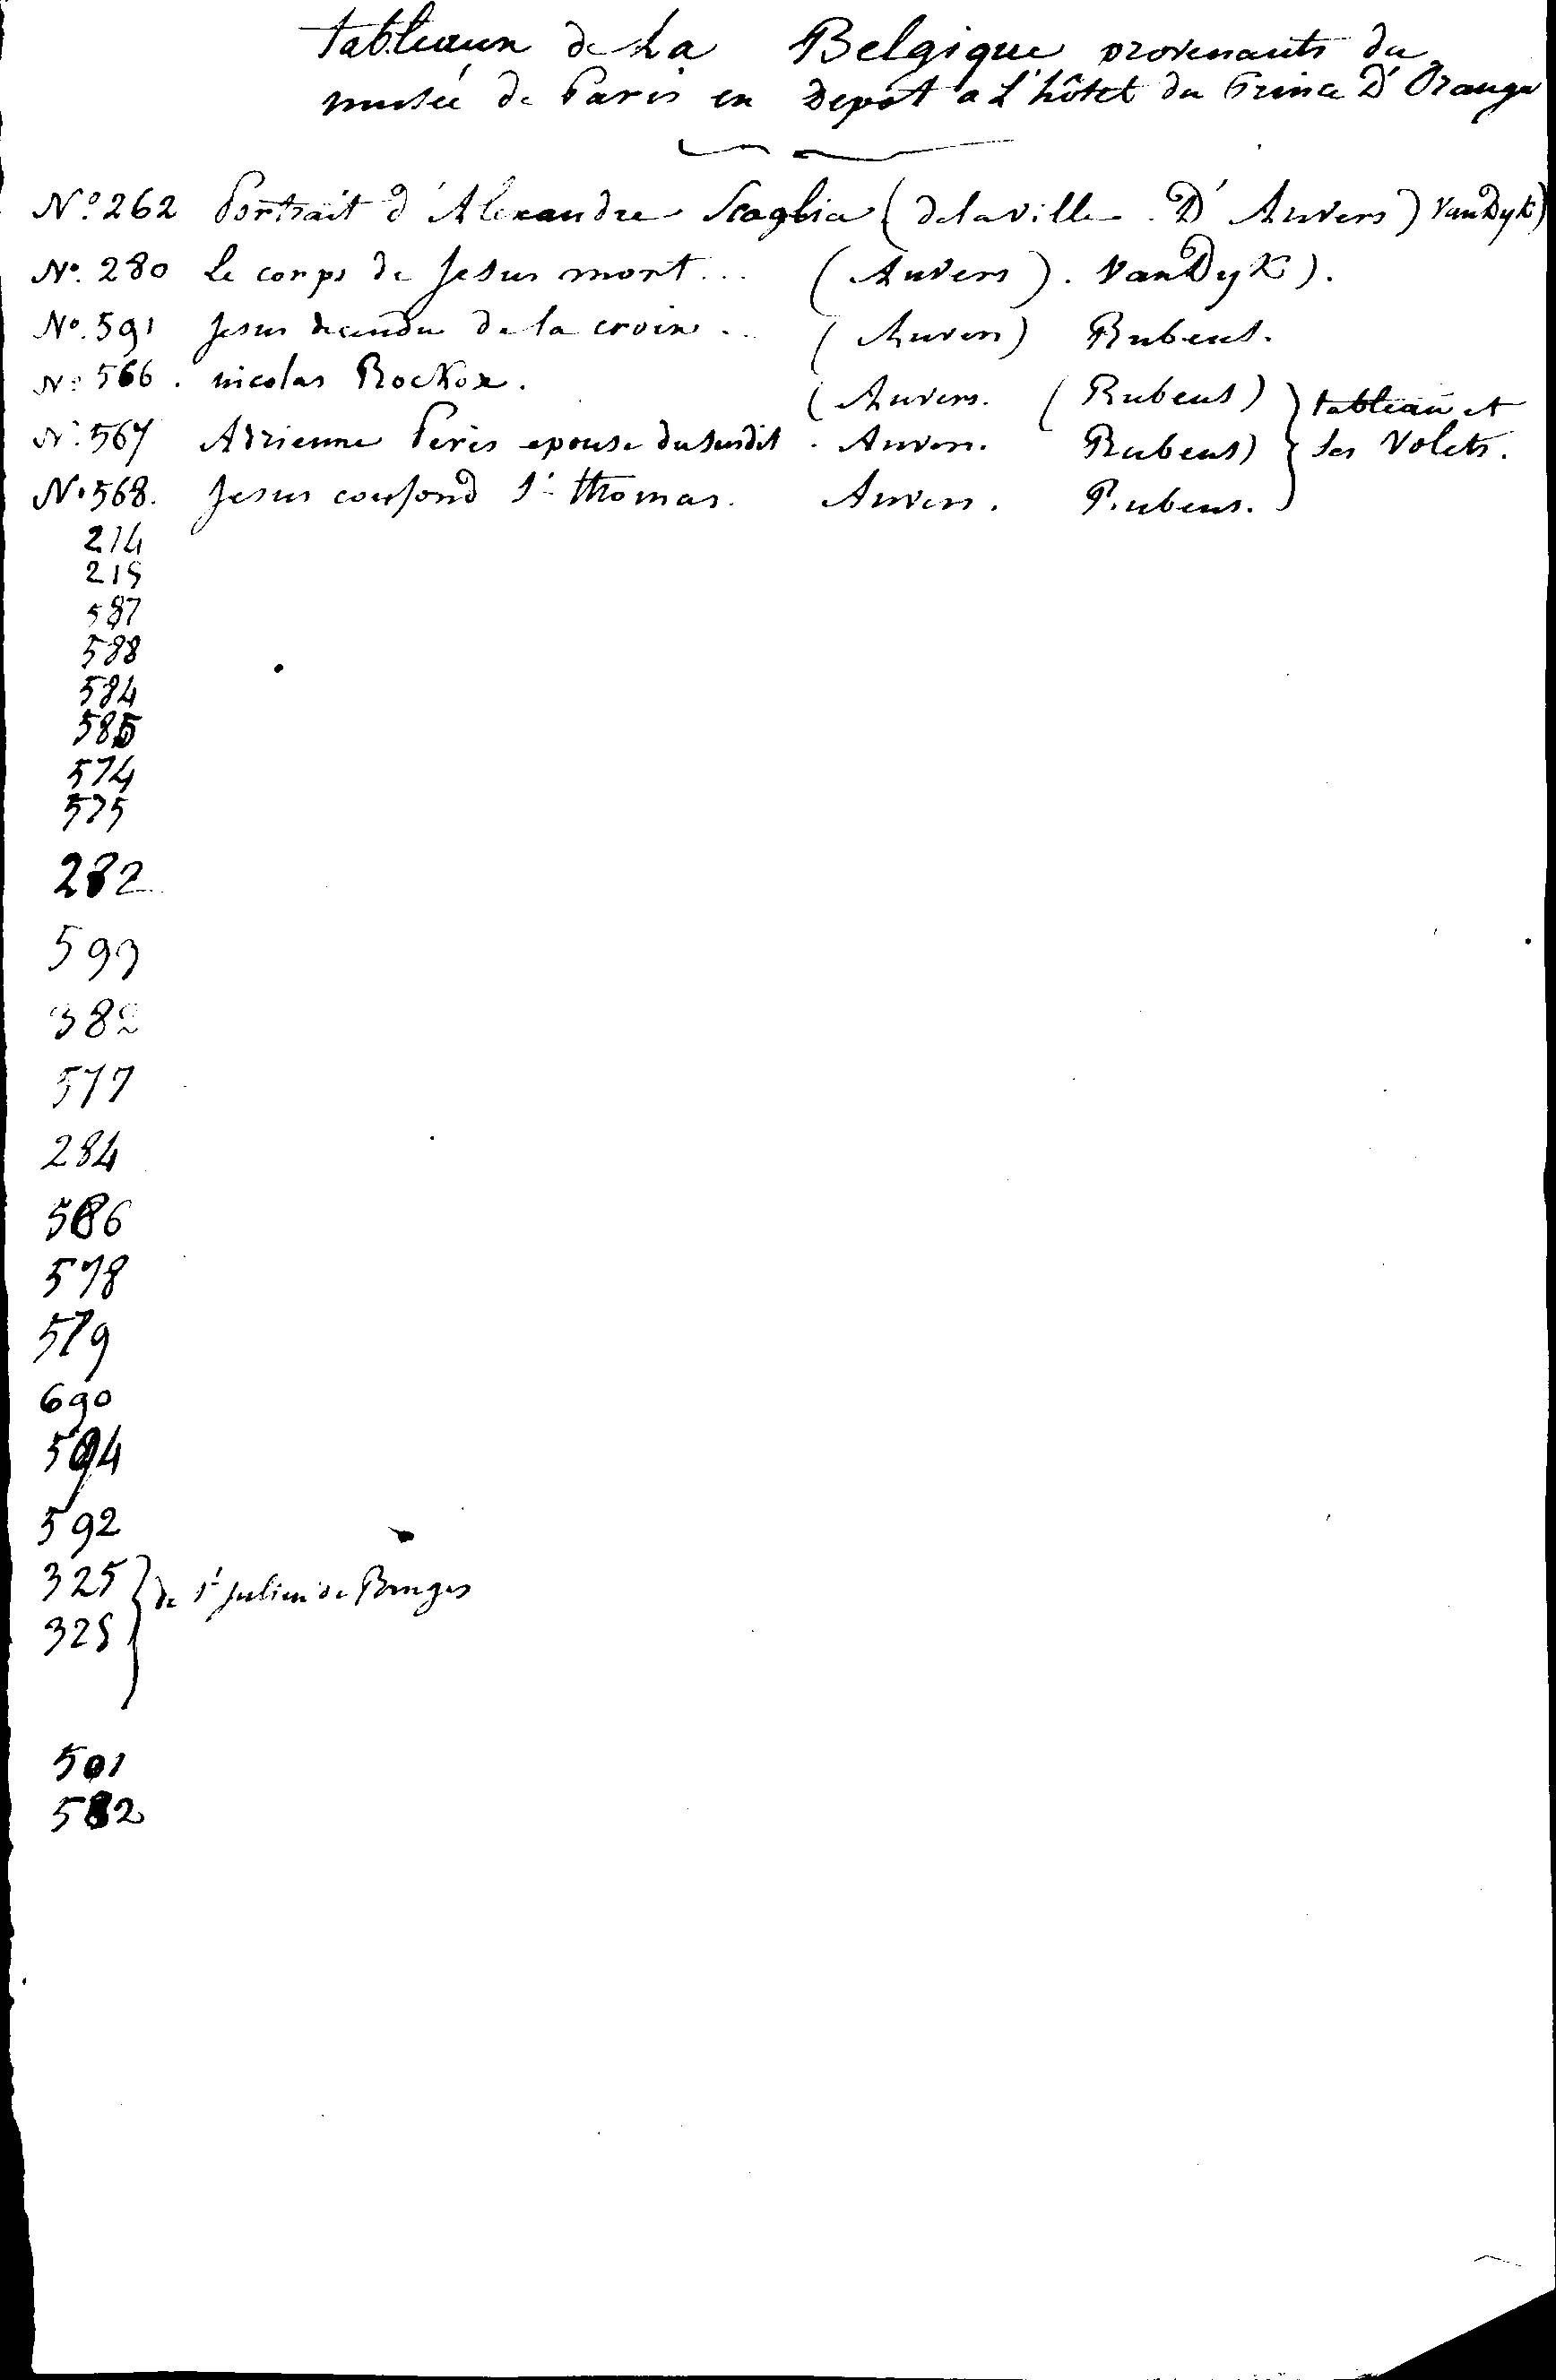 tableaux de La Belgique provenants du
musée de Paris en Depot a L'hôtel du Prince D'Orange
N.º 262 Portrait d'Alexandre Scaglia (de la ville D'Anvers) VanDyk)
Nº. 280 Le corps de Jesus mort... (Anvers). VanDyK).
Nº. 591 Jesus decendu de la croix .. (Anvers) Rubens.
Nº 566. nicolas Rockox. (Anvers. (Rubens) } tableau et
Nº 567 Adrienne Peris epouse du susdit. Anvers. Rubens) } ses Volets.
Nº 568. Jesus confond St thomas. Anvers. Rubens. }
214
215
587
588
584
585
574
575
282
593
382
577
284
586
578
579
690
594
592
325 } de St Julien de Bruges
325
501
582